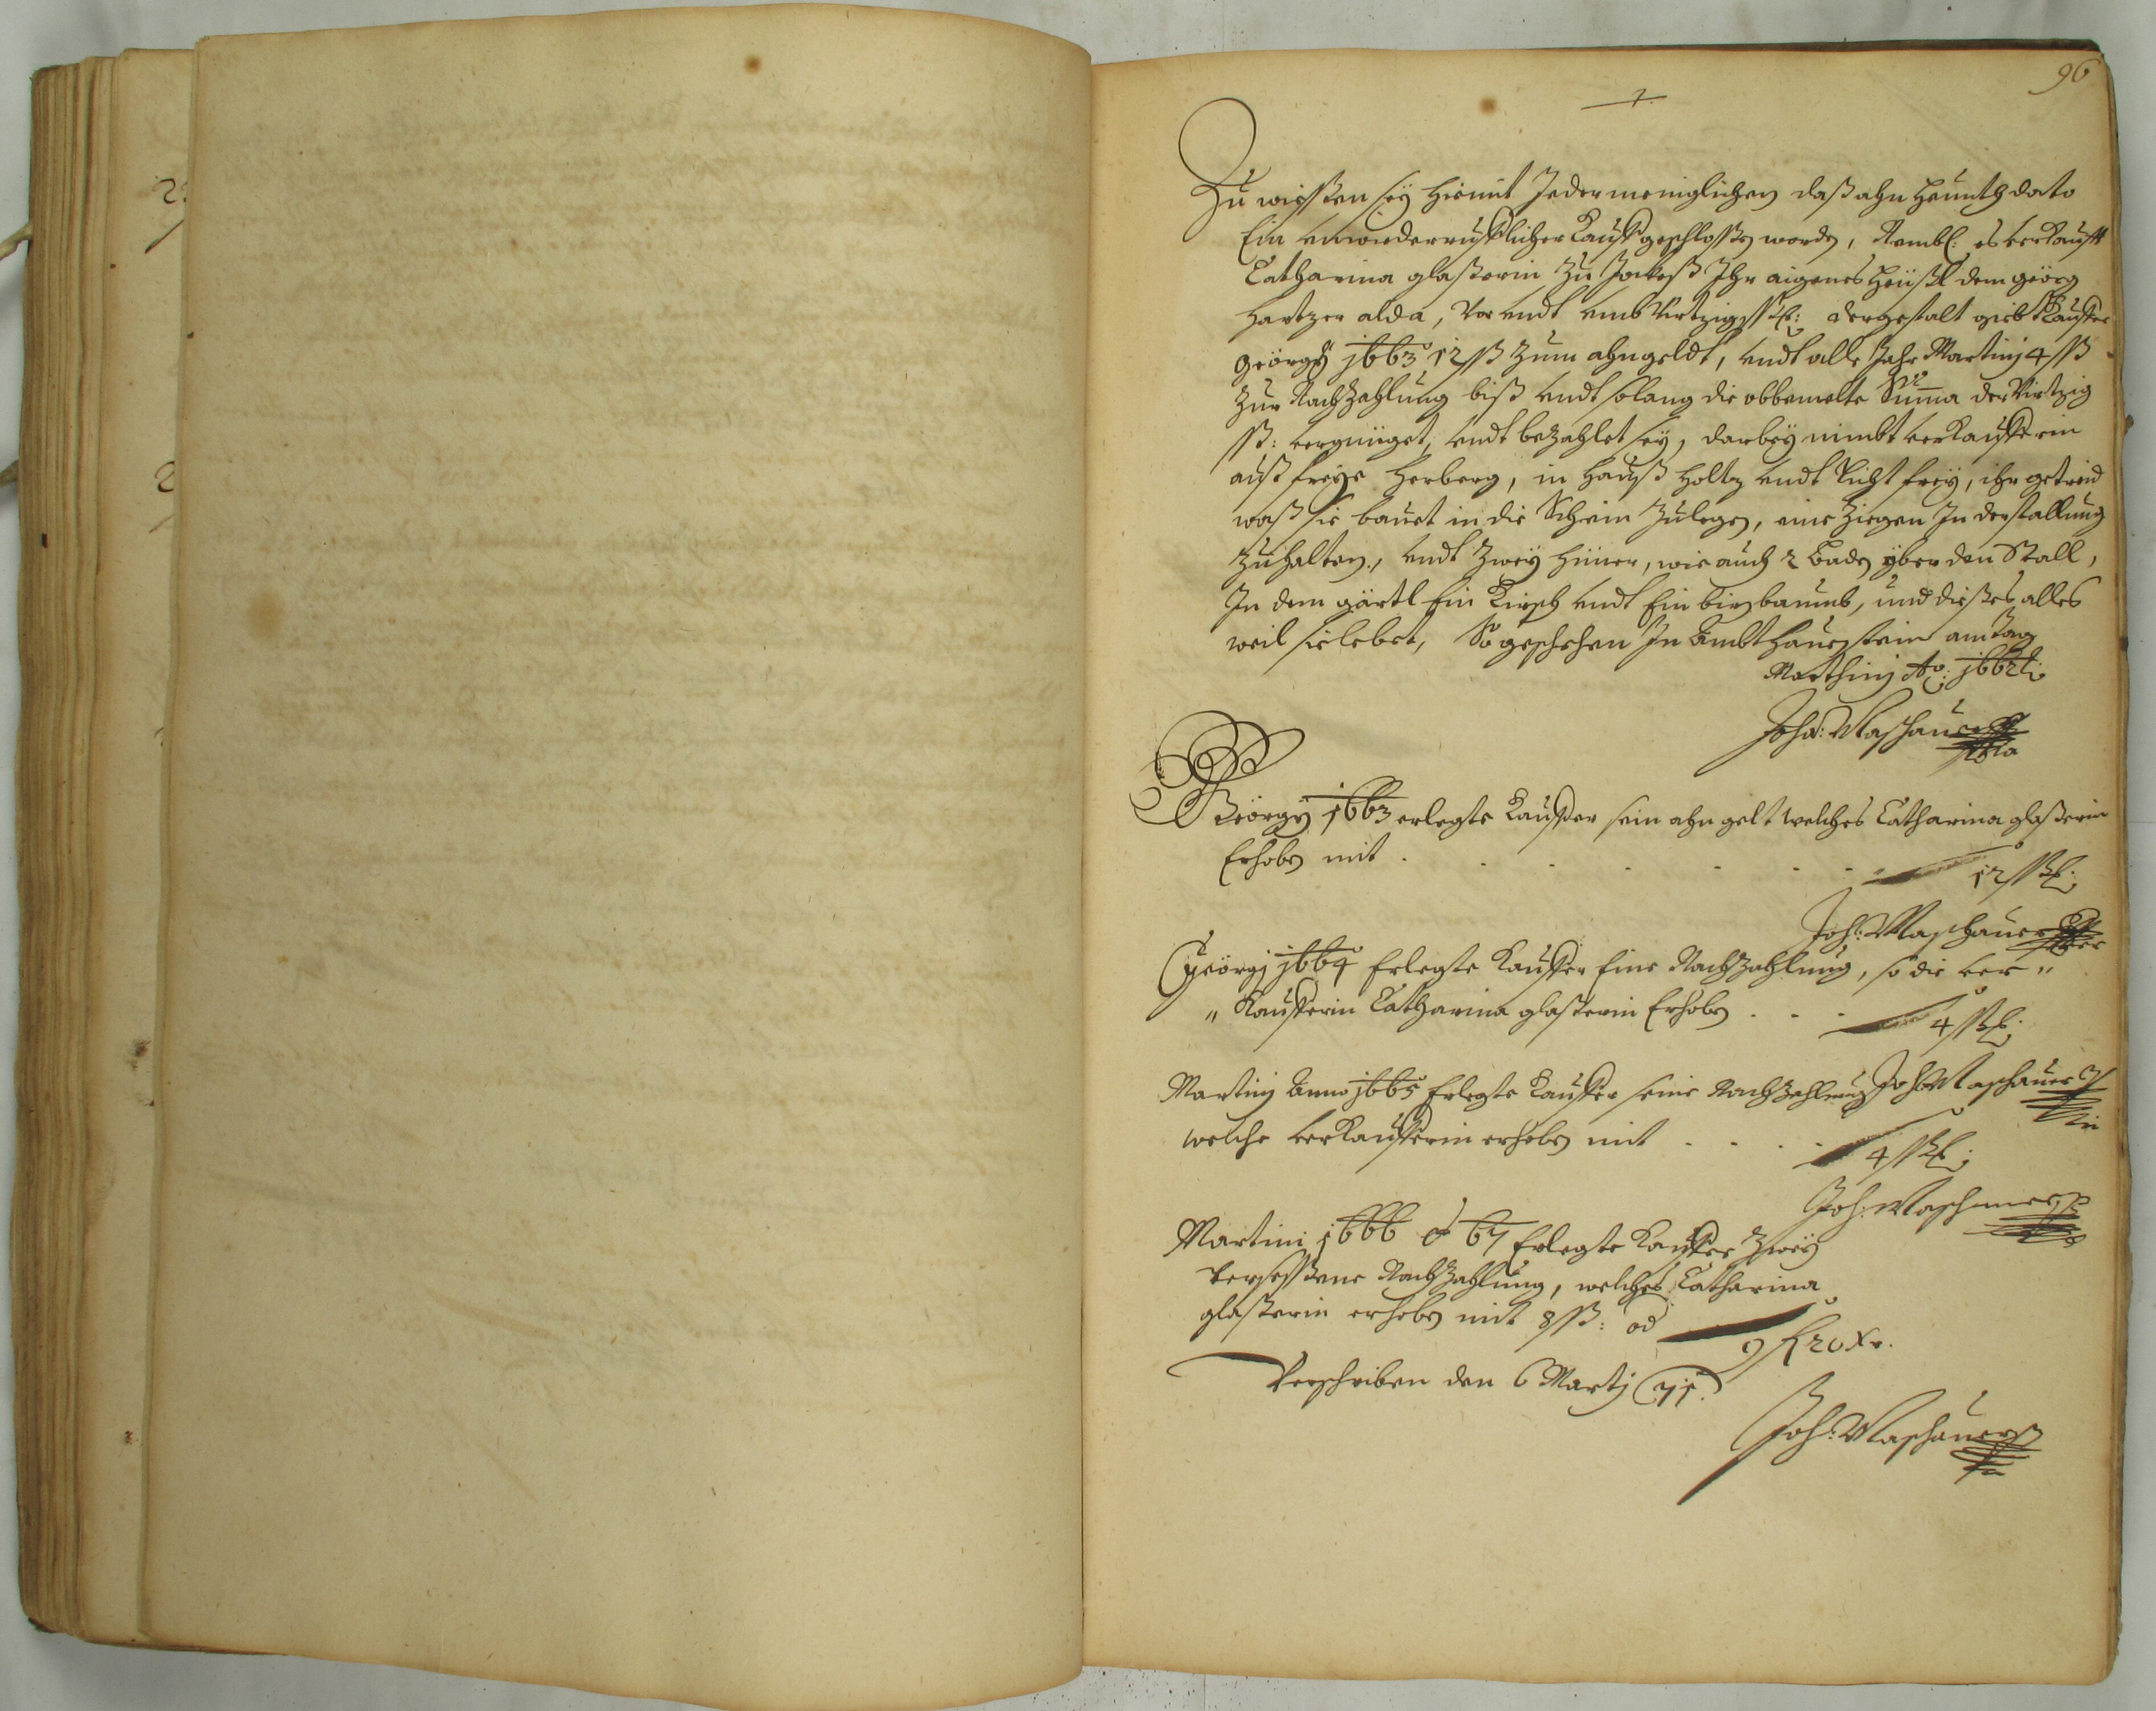 96
7.
Zu wissen sey hiemit Jedermeniglichen daß ahn heunth dato
Ein unwiderrufflicher Kauff geschlossen worden, Nembl: es verkaufft
Catharina glaßerin zu Ihr aigenes heüßl dem geörg
hartzer alda, vor undt umb Virtzig ßß: dergestalt gieb Kauffer
geörgÿ 1663 12 ßß zum ahngeldt, undt alle Jahr Martinj 4 ßß
zur Nachzahlung biß undt solang die obbemelte Suma der Virtzig
ßß: vergnüget, undt bezahlet seÿ, darbeÿ nimbt verkaufferin
auß freÿe herberg, in hauß holtz undt licht freÿ, ihr getreid
waß sie bauet in die Scheün zulegen, eine Ziegen In der stallung
zuhalten, undt zweÿ hüner, wie auch 2 Baden yber den Stall,
In dem gärtl Ein Kirsch undt Ein birnbaumb, und dießes alles
weil sie lebet, So geschehen In Ambt Hauenstein am tag
Marthinj Ao: 1662t:
Joha: Maschauer
Geörgÿ 1663 erlegte Kauffer sein ahngelt welches Catharina glaßerin
Erhoben mit . . . . . . 12 ßß:
Joh: Maschauer
Geörgj 1664 Erlegte Kauffer Eine Nachzahlung, so die ver "
" Kaufferin Catharina glaßerin Erhoben . . . 4 ßß:
Martinj Anno 1665 Erlegte Kauffer seine Nachzahlung Joh Maschauer
welche verkaufferin erhoben mit . . . . 4 ßß:
Joh: Maschauer
Martini 1666 et 67 Erlegte Kauffer Zweÿ
versessene Nachzahlung, welches Catharina
glaßerin erhoben mit 8 ßß: od 9 fl 20 Xr.
Verschriben den 6 Martj 71.
Joh: Maschauer